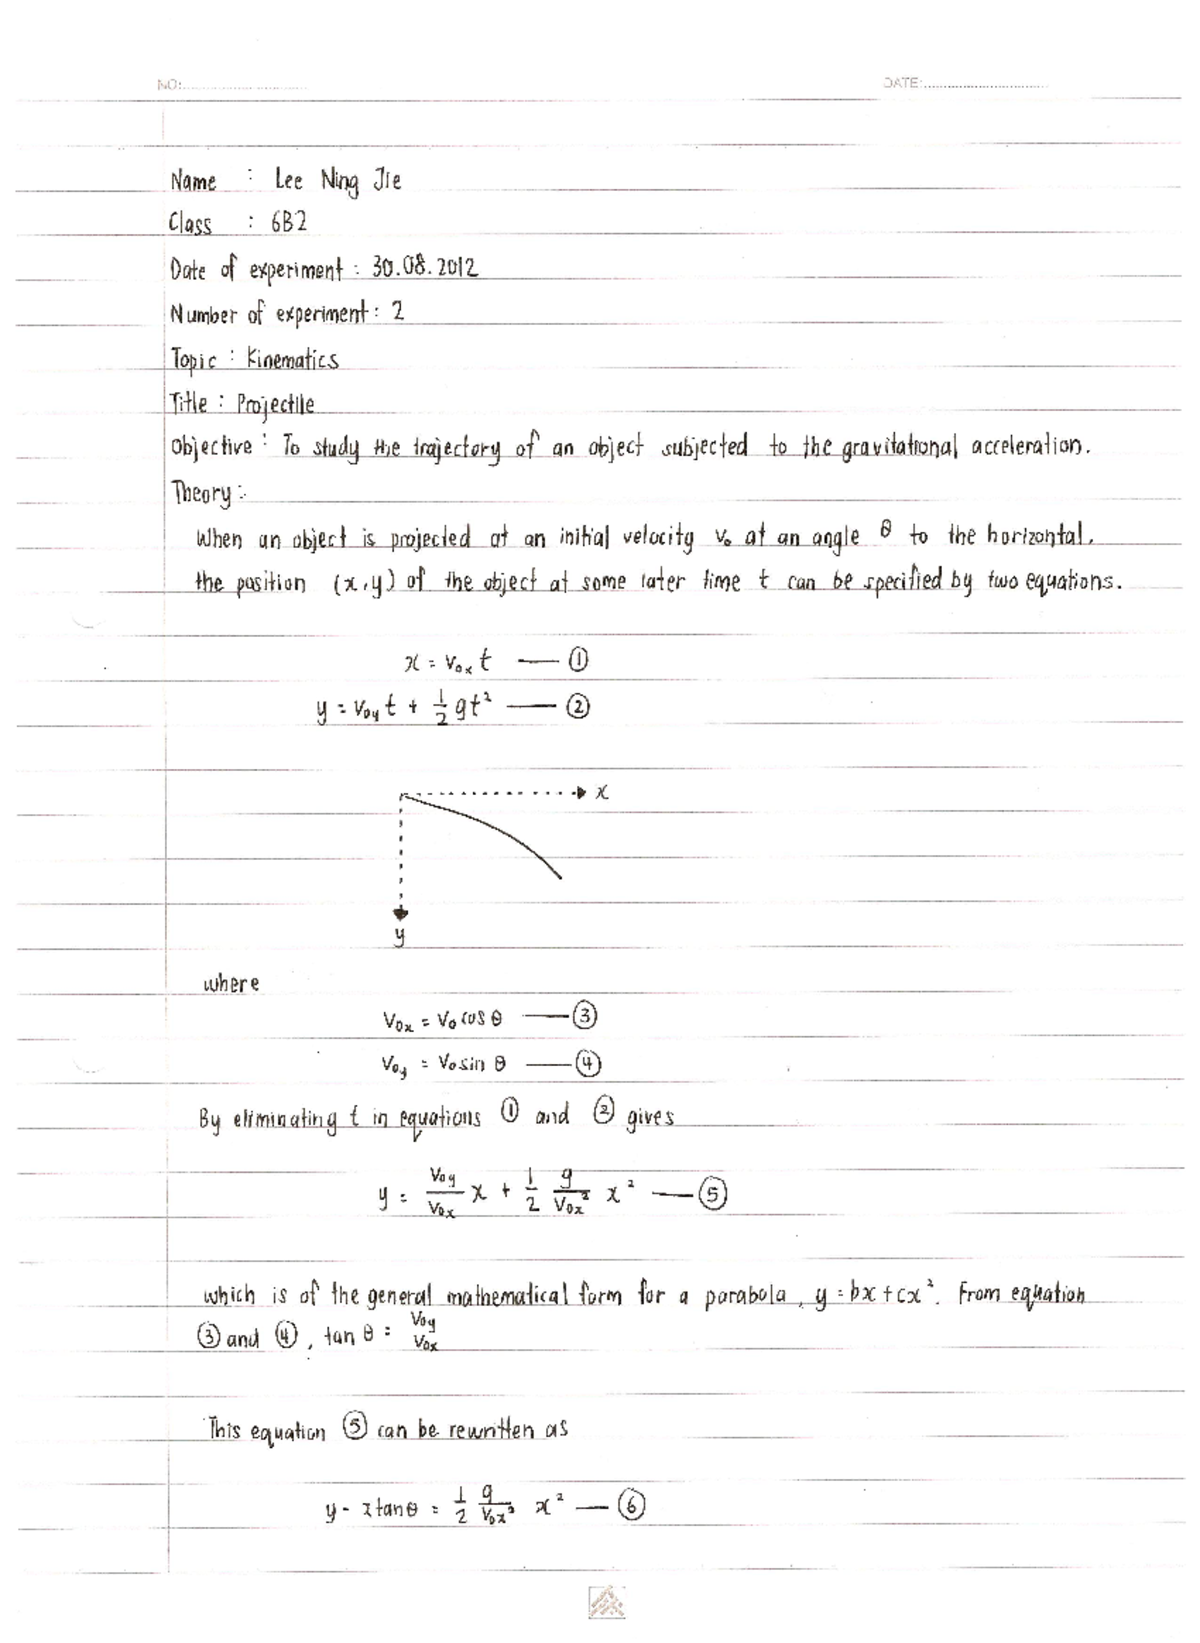 NO:
DATE:
Name : Lee Ning Jie
Class : 6B2
Date of experiment : 30.08.2012
Number of experiment : 2
Topic : Kinematics
Title : Projectile
Objective : To study the trajectory of an object subjected to the gravitational acceleration.
Theory :
When an object is projected at an initial velocity v₀ at an angle θ to the horizontal,
the position (x,y) of the object at some later time t can be specified by two equations.
x = v₀ₓ t — ①
y = v₀y t + 1/2 gt² — ②
x
y
where
v₀ₓ = v₀ cos θ — ③
v₀y = v₀ sin θ — ④
By eliminating t in equations ① and ② gives
y = v₀y/v₀ₓ x + 1/2 g/v₀ₓ² x² — ⑤
which is of the general mathematical form for a parabola, y = bx + cx². From equation
③ and ④, tan θ = v₀y/v₀ₓ
This equation ⑤ can be rewritten as
y - x tan θ = 1/2 g/v₀ₓ² x² — ⑥